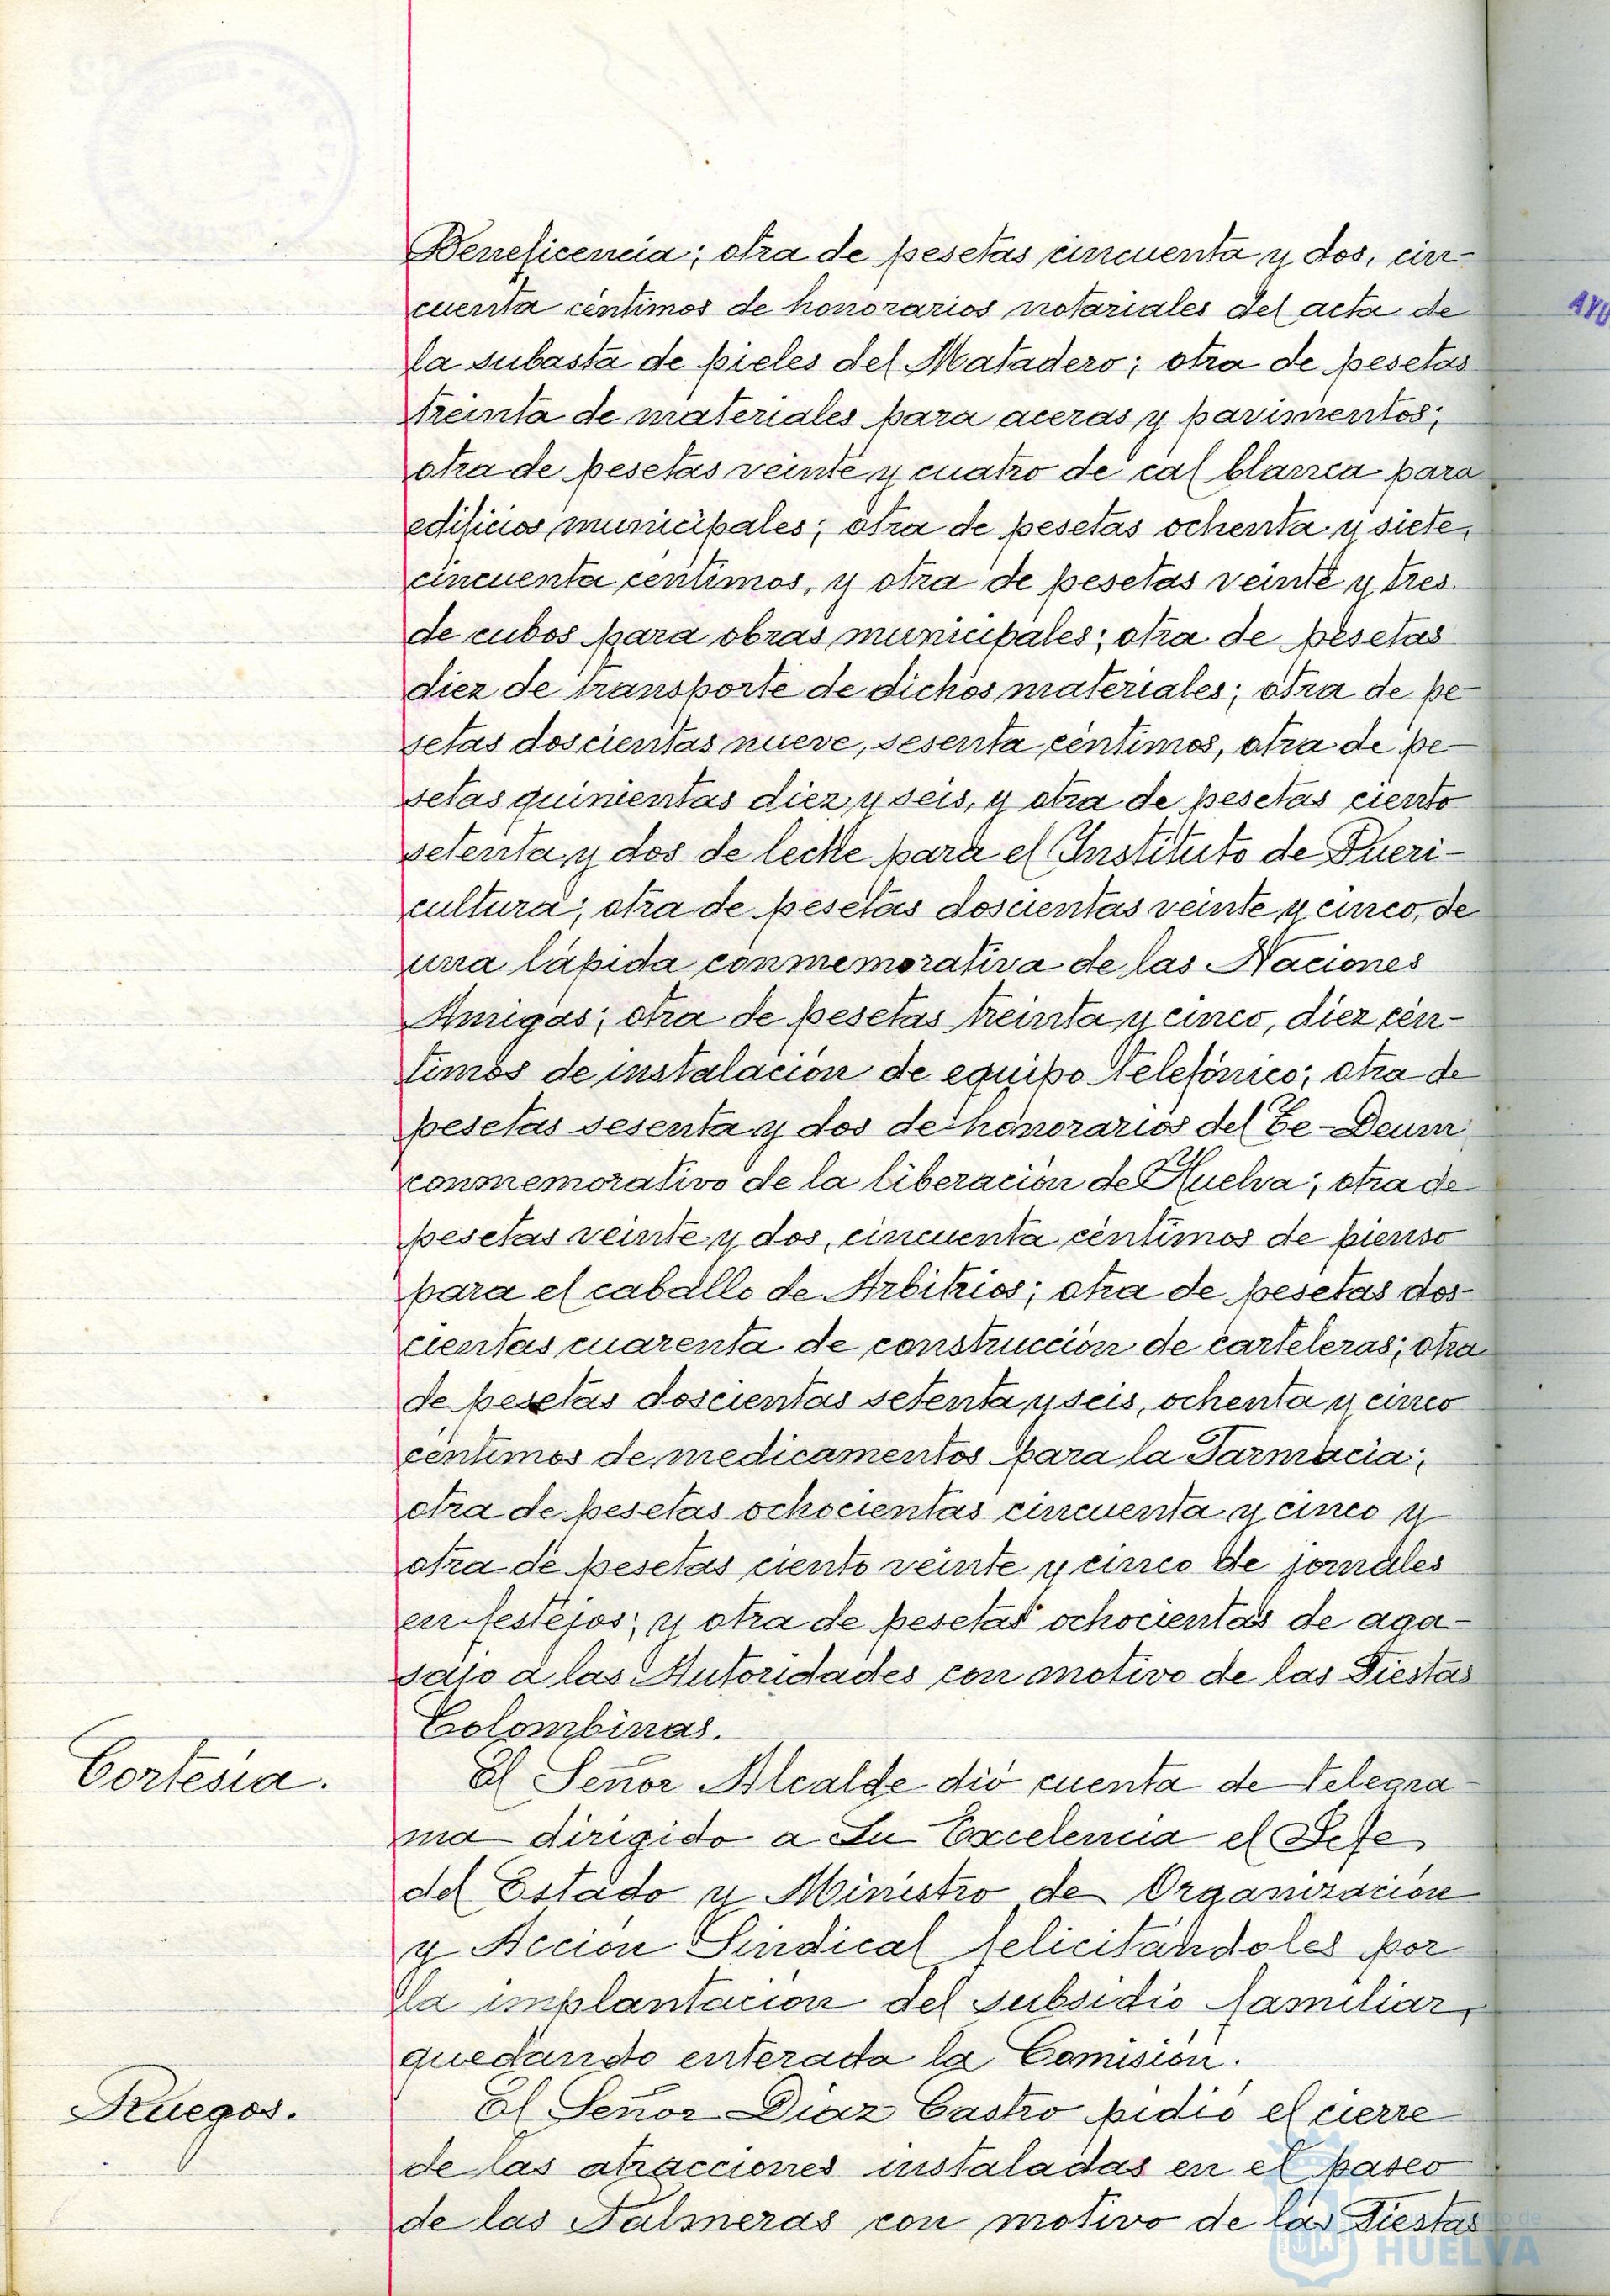 Beneficencia; otra de pesetas cincuenta y dos, cin-
cuenta céntimos de honorarios notariales del acta de
la subasta de pieles del Matadero; otra de pesetas
treinta de materiales para aceras y pavimentos;
otra de pesetas veinte y cuatro de cal blanca para
edificios municipales; otra de pesetas ochenta y siete,
cincuenta centimos, y otra de pesetas veinte y tres
de cubos para obras municipales; otra de pesetas
diez de transporte de dichos materiales; otra de pe-
setas doscientas nueve, sesenta céntimos, otra de pe-
setas quinientas diez y seis, y otra de pesetas ciento
setenta y dos de leche para el Instituto de Pueri-
cultura; otra de pesetas doscientas veinte y cinco, de
una lápida conmemorativa de las Naciones
Amigas; otra de pesetas treinta y cinco, diez cén-
timos de instalación de equipo telefónico; otra de
pesetas sesenta y dos de honorarios del Te-Deum
conmemorativo de la liberación de Huelva; otra de
pesetas veinte y dos, cincuenta céntimos de pienso
para el caballo de Arbitrios; otra de pesetas dos-
cientas cuarenta de construcción de carteleras; otra
de pesetas doscientas setenta y seis, ochenta y cinco
céntimos de medicamentos para la Farmacia;
otra de pesetas ochocientas cincuenta y cinco y
otra de pesetas ciento veinte y cinco de jornales
en festejos; y otra de pesetas ochocientas de aga-
sajo a las Autoridades con motivo de las Fiestas
Colombinas.
Cortesía.
El Señor Alcalde dió cuenta de telegra-
ma dirigido a Su Excelencia el Jefe
del Estado y Ministro de Organización
y Acción Sindical felicitándoles por
la implantación del subsidio familiar,
quedando enterada la Comisión.
Ruegos.
El Señor Diaz Castro pidió el cierre
de las atracciones instaladas en el paseo
de las Palmeras con motivo de las Fiestas
AYU
HUELVA